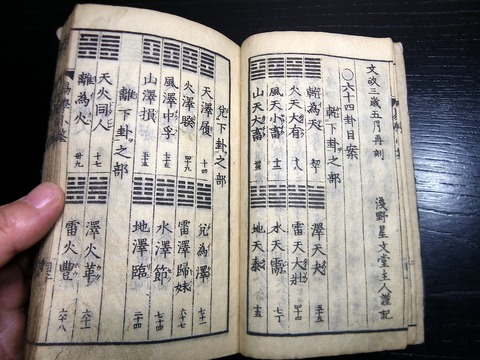 文政三歳五月再刻
淺野星文堂主人謹記
○六十四卦目案
乾下卦之部
乾為天
澤天夬
火天大有
雷天大壯
風天小畜
水天需
山天大畜
地天泰
兌下卦之部
天澤履 十四
兌為澤 七十一
火澤睽 四十九
雷澤歸妹 六十七
風澤中孚 七十五
水澤節 七十四
山澤損
地澤臨 二十四
離下卦之部
天火同人 十七
澤火革 六十一
離為火 卅九
雷火豐 六十八